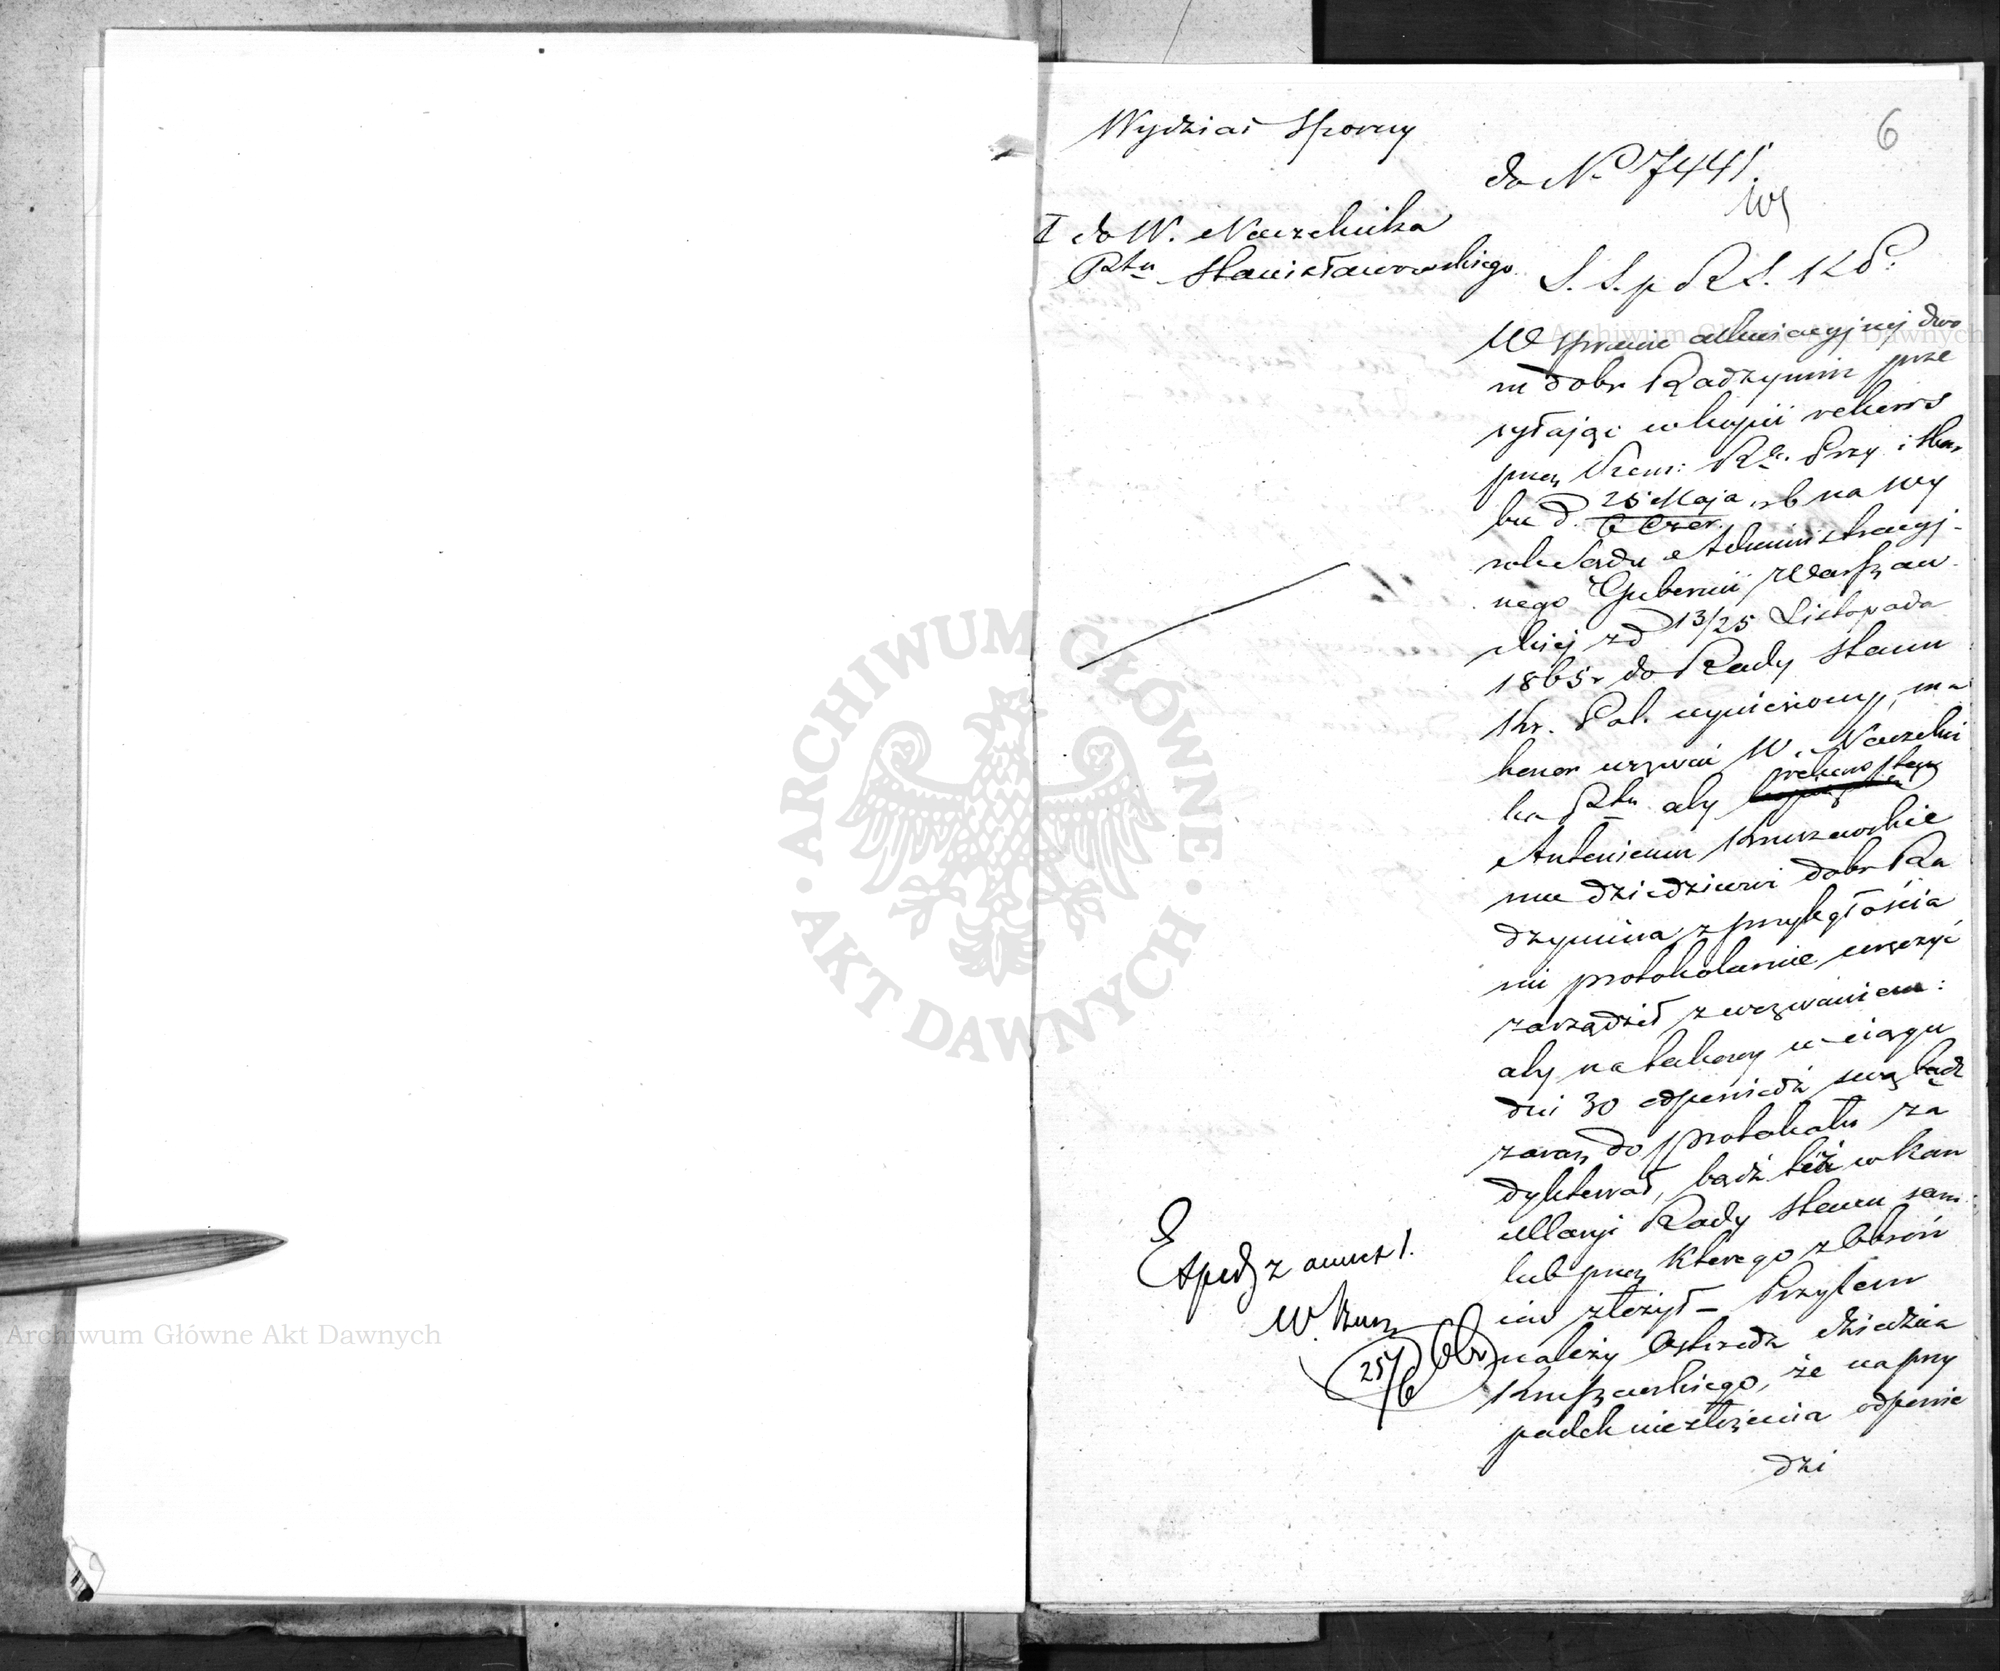 6
Wydział Sporny
do N. 7441
I do W. Naczelnika
Ptu Stanisławowskiego
S. S. p R S. K P:
W sprawie aluwiacyjnej dwo
ru dobr Radzymin prze
syłając w kopii rekurs
przez Kom: Rz. Przy. i Skar
bu d. 25 Maja / 6 Czer. rb na wy
rok Sądu Administracyj-
nego Gubernii Warszaw
skiej z d 13/25 Listopada
1865 r do Rady Stanu
Kr. Pol. wyniesiony, ma
honor wezwać W. Naczelni
ka Ptu aby rekurs tenże
Antoniemu Kruszewskie
mu dziedzicowi dobr Ra
dzymina z przyległościa
mi protokolarnie wręczyć
zarządził z wezwaniem:
aby na takowy w ciągu
dni 30 odpowiedź swą bądź
zaraz do protokołu za
dyktował, bądź też w Kan
cellaryi Rady Stanu sam
lub przez którego z Obroń
ców złożył – Przytem
należy ostrzedz dziedzica
Kruszewskiego, że na przy
padek niezłożenia odpowie
dzi
Exped z annex 1.
25/6 66 r
Archiwum Główne Akt Dawnych
ARCHIWUM GŁÓWNE · AKT DAWNYCH ·
Archiwum Główne Akt Dawnych